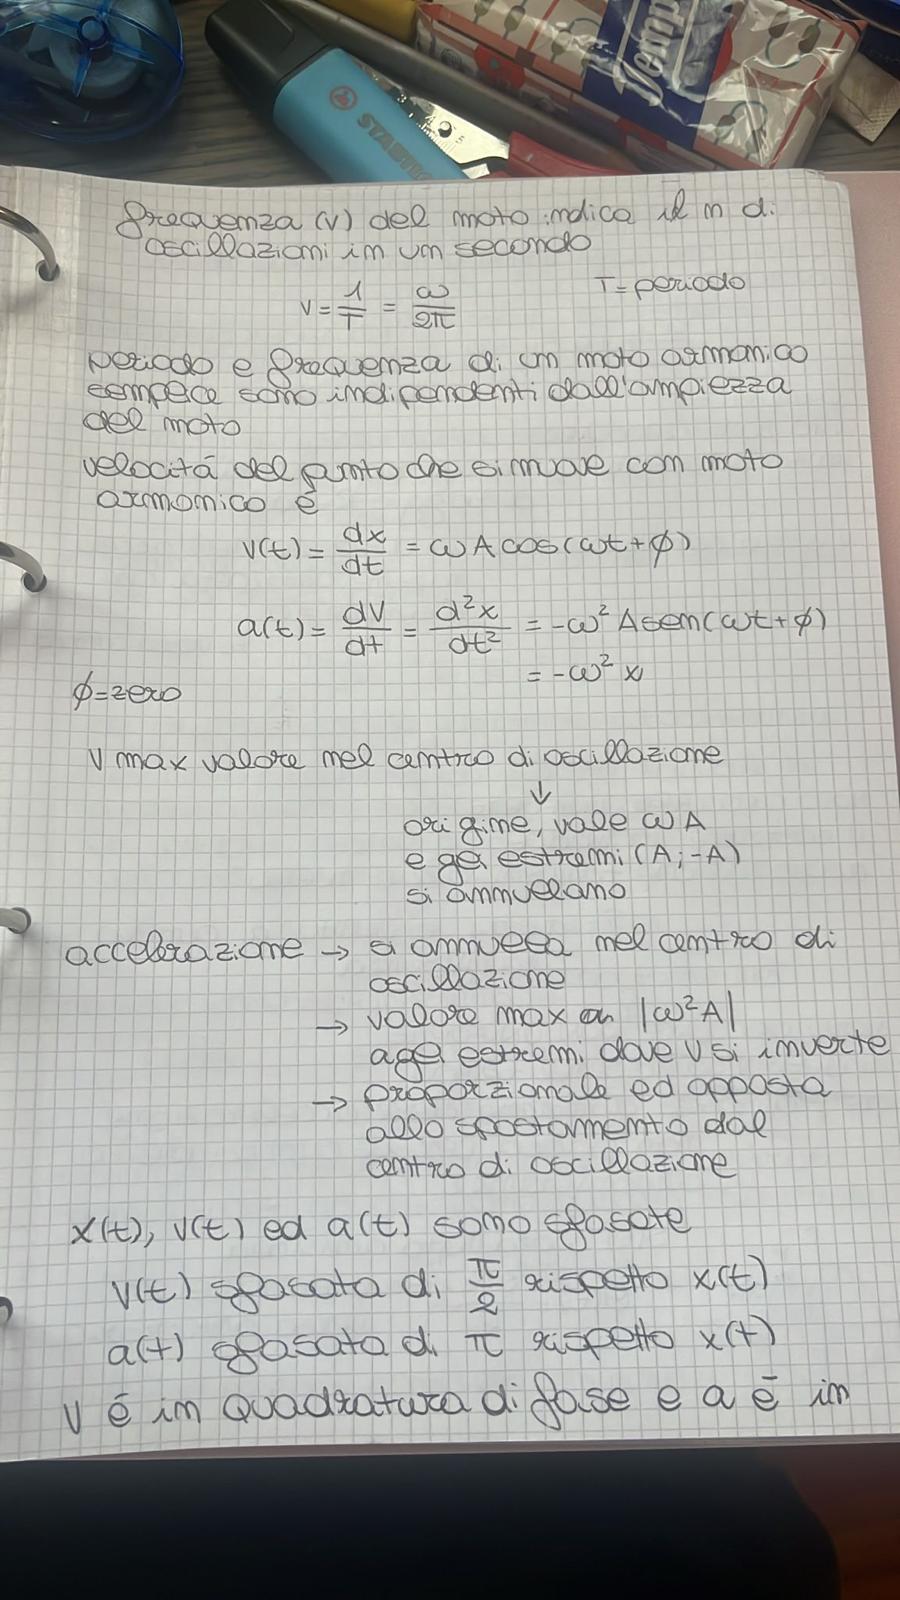 Temp
STABILO
frequenza (ν) del moto indica il n di
oscillazioni in un secondo
ν = 1/T = ω/2π    T = periodo
periodo e frequenza di un moto armonico
sempece sono indipendenti dall'ampiezza
del moto
velocitá del punto che si muove con moto
armonico é
v(t) = dx/dt = ω A cos(ωt + φ)
a(t) = dv/dt = d²x/dt² = -ω² A sen(ωt + φ)
= -ω² x
φ = zero
v max valore nel centro di oscillazione
↓
origine, vale ω A
e gei estremi (A; -A)
si annuelano
accelerazione → si annuela nel centro di
oscillazione
→ valore max |ω²A|
agei estremi dove v si inverte
→ proporzionale ed opposta
allo spostamento dal
centro di oscillazione
x(t), v(t) ed a(t) sono sfasate
v(t) sfasata di π/2 rispetto x(t)
a(t) sfasata di π rispetto x(t)
v é in quadratura di fase e a é in